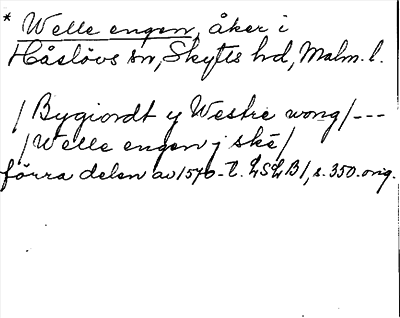 * Welle engen, åker i
Håslövs sn, Skytts hd, Malm. l.
/ Bygiordt y Westre wong / ---
/ Welle engen j ske /
förra delen av 1570-t. LSLB 1, s. 350. orig.